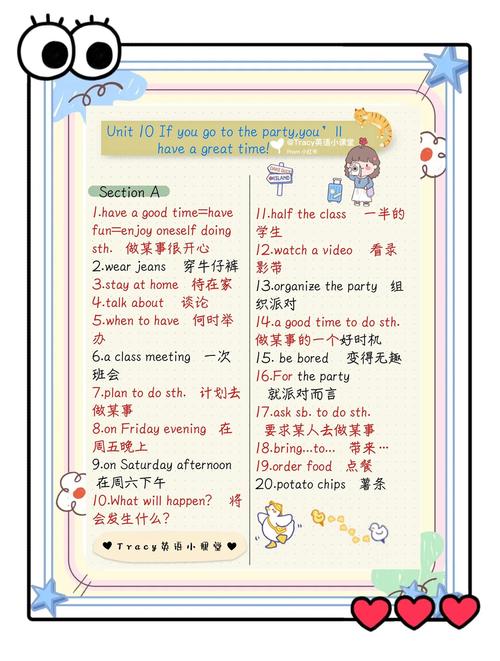 Unit 10 If you go to the party,you'll
have a great time!
@Tracy英语小课堂
From 小红书
Section A
1.have a good time=have
fun=enjoy oneself doing
sth. 做某事很开心
2.wear jeans 穿牛仔裤
3.stay at home 待在家
4.talk about 谈论
5.when to have 何时举
办
6.a class meeting 一次
班会
7.plan to do sth. 计划去
做某事
8.on Friday evening 在
周五晚上
9.on Saturday afternoon
在周六下午
10.What will happen? 将
会发生什么?
♥Tracy英语小课堂♥
ISLAND
11.half the class 一半的
学生
12.watch a video 看录
影带
13.organize the party 组
织派对
14.a good time to do sth.
做某事的一个好时机
15. be bored 变得无趣
16.For the party
就派对而言
17.ask sb. to do sth.
要求某人去做某事
18.bring...to... 带来…
19.order food 点餐
20.potato chips 薯条